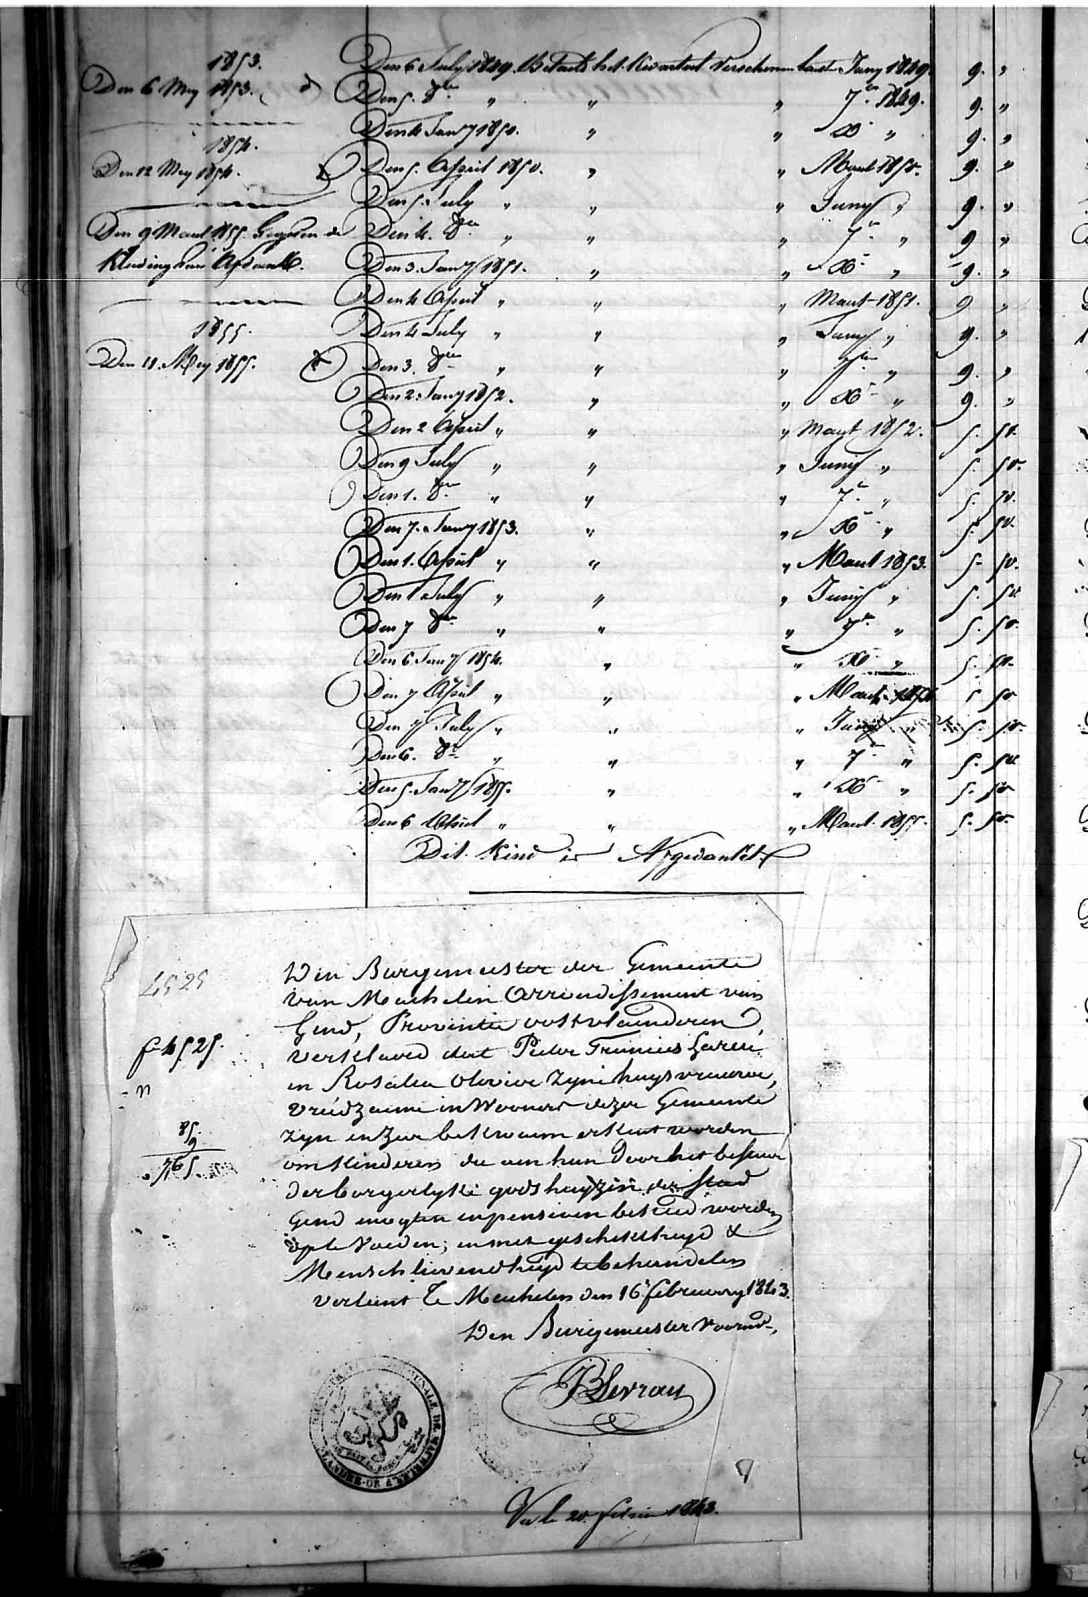 1853.
Den 6 Mey 1853.
1854.
Den 12 Mey 1854.
Den 9 Maart 1855. Gegeven de
Kleeding van Afdankt.
1855.
Den 11. Mey 1855.
Den 6 July 1849. Betaelt het Kwartael Verschenen laest Juny 1849. 9. "
Den 5. 8bre " " " 7bre 1849. 9. "
Den 4 Jany 1850. " " Xbre " 9. "
Den 5. April 1850. " " Maart 1850. 9. "
Den 5. July " " " Juny " 9. "
Den 4. 8bre " " " 7bre " 9 "
Den 3. Jany 1851. " " Xbre " 9. "
Den 4 April " " " Maart 1851. 9 "
Den 4 July " " " Juny " 9. "
Den 3. 8bre " " " 7bre " 9. "
Den 2. Jany 1852. " " Xbre " 9. "
Den 2 April " " " Maart 1852. 5. 50.
Den 9 July " " " Juny " 5. 50.
Den 1. 8bre " " " 7bre " 5. 50.
Den 7. Jany 1853. " " Xbre " 5. 50.
Den 1. April " " " Maart 1853. 5. 50.
Den 1 July " " " Juny " 5. 50
Den 7 8bre " " " 7bre " 5. 50.
Den 6 Jany 1854. " " Xbre " 5. 50.
Den 7 April " " " Maart 1854 5 50
Den 7 July " " " Juny " 5. 50.
Den 6. 8bre " " " 7bre " 5. 50
Den 5. Jany 1855. " " Xbre " 5. 50
Den 6 April " " " Maart 1855. 5. 50.
Dit Kind is Afgedankt
4525
f 4525.
n
85
9
765.
Den Burgemeester der Gemeente
van Machelen Arrondissement van
Gend, Provintie oostvlaenderen,
verklaerd dat Pieter Francies
en Rosalia Olivier zyne huysvrouwe,
vreedzaeme inwooners dezer Gemeente
zyn en zeer bekwaem erkent worden
om kinderen die aen hun door het bestuer
der borgerlyke godshuyzen der stad
Gend mogten in pensioen besteed worden
op te voeden; en met geschiktheyd &
Menschlievendheyd te behandelen
verleent te Machelen den 16 february 1843.
Den Burgemeester voornd.,
Vu le 20 février 1843.